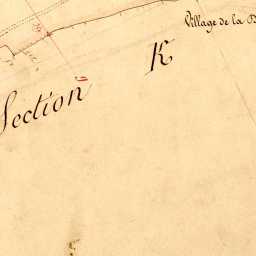 Village de la B
Section K